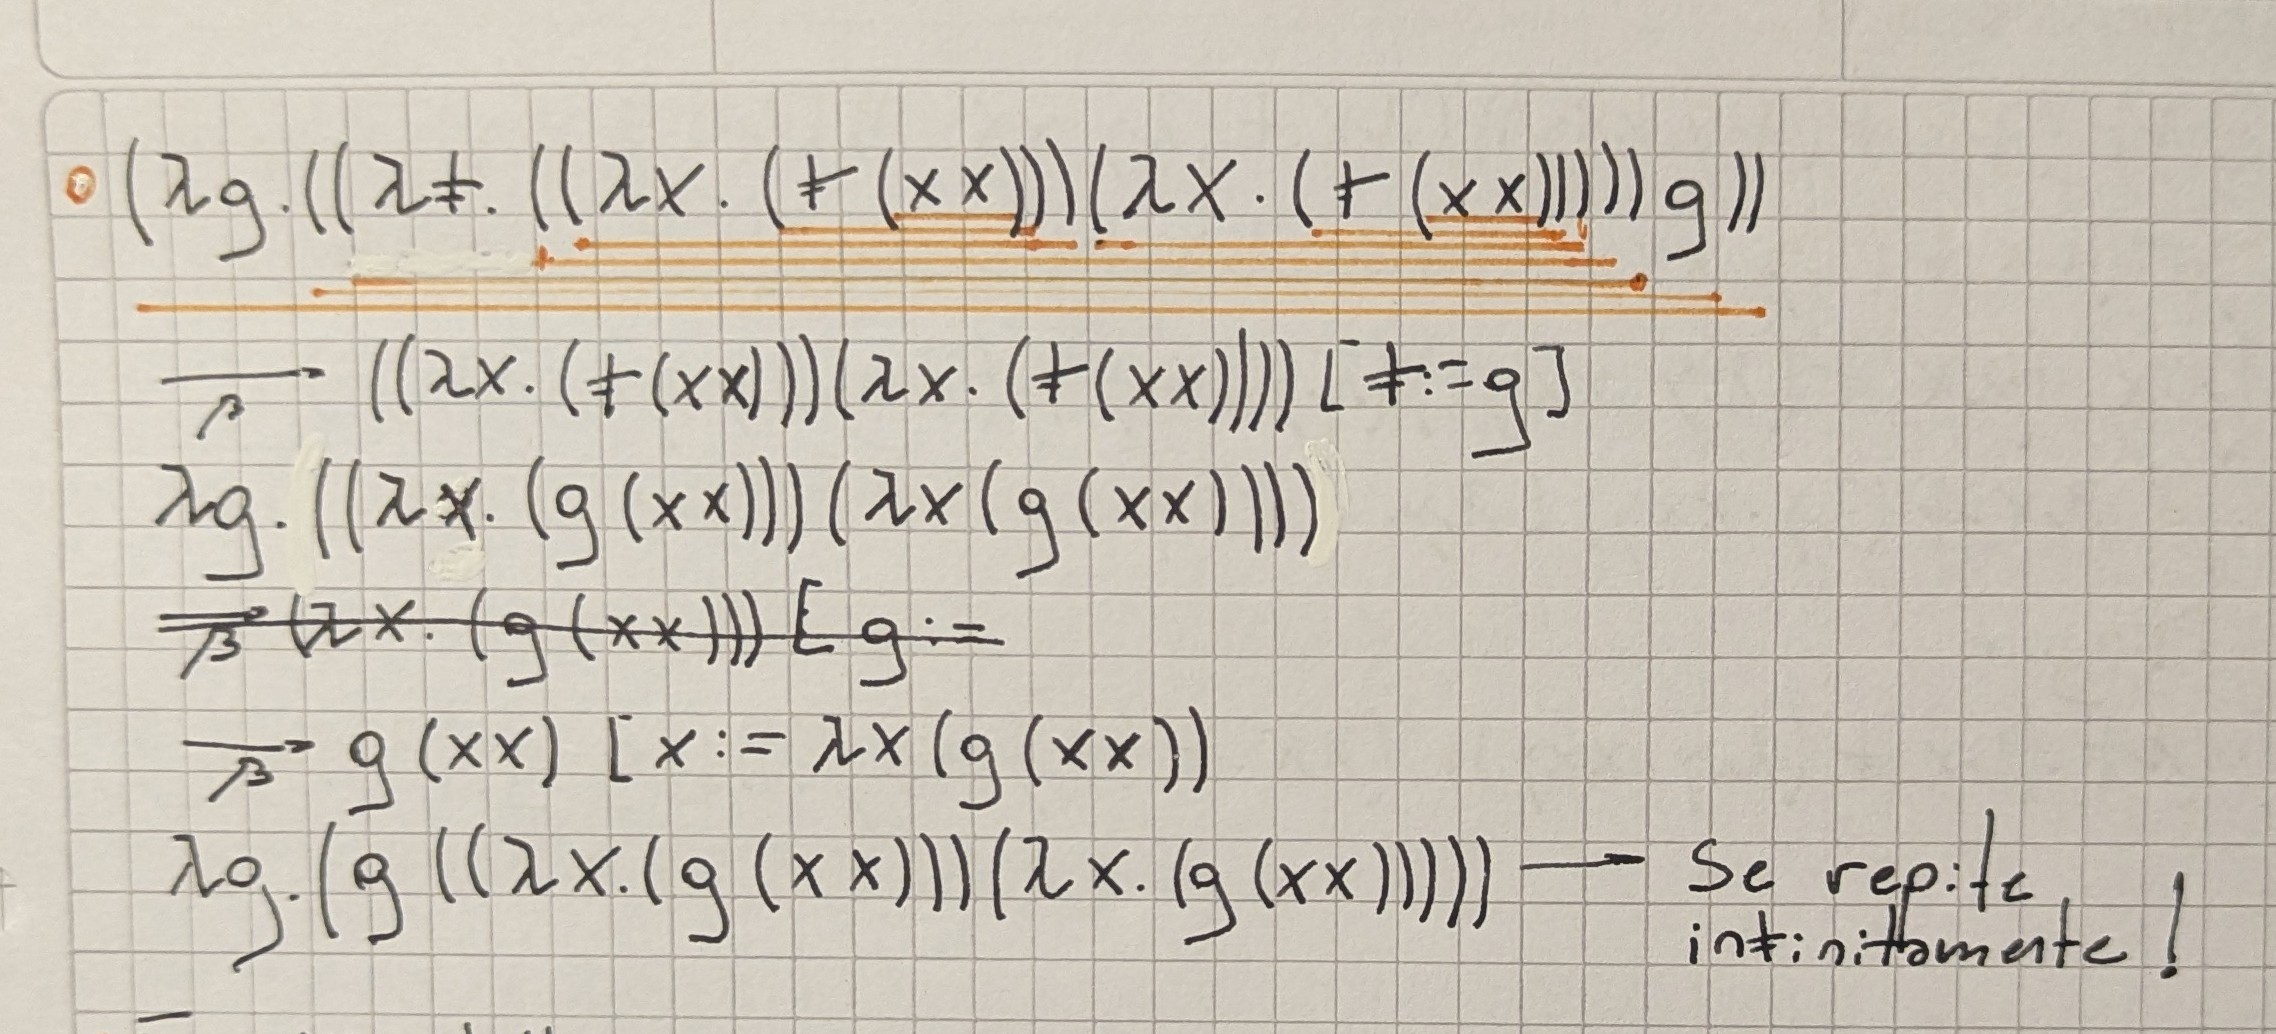 (λg.((λf.((λx.(f(xx)))(λx.(f(xx)))))g))
→β ((λx.(f(xx)))(λx.(f(xx)))) [f:=g]
λg.((λx.(g(xx)))(λx(g(xx))))
→β (λx.(g(xx))) [g:=
→β g(xx) [x:= λx(g(xx))
λg.(g((λx.(g(xx)))(λx.(g(xx))))) → Se repite
infinitamente!